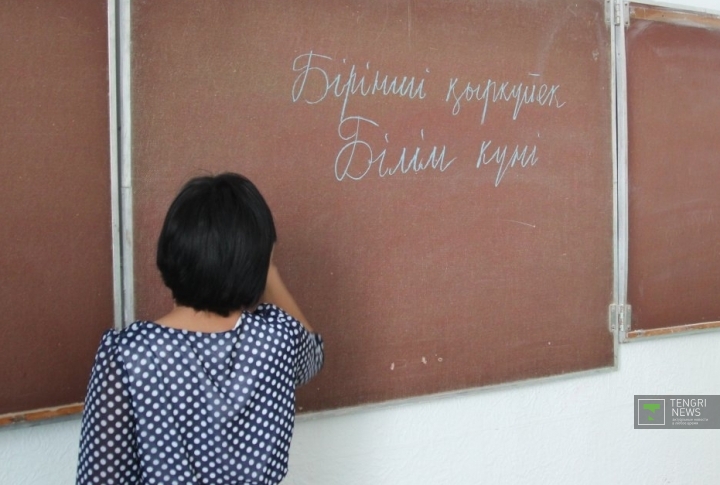 Бірінші қыркүйек
Білім күні
TENGRI
NEWS